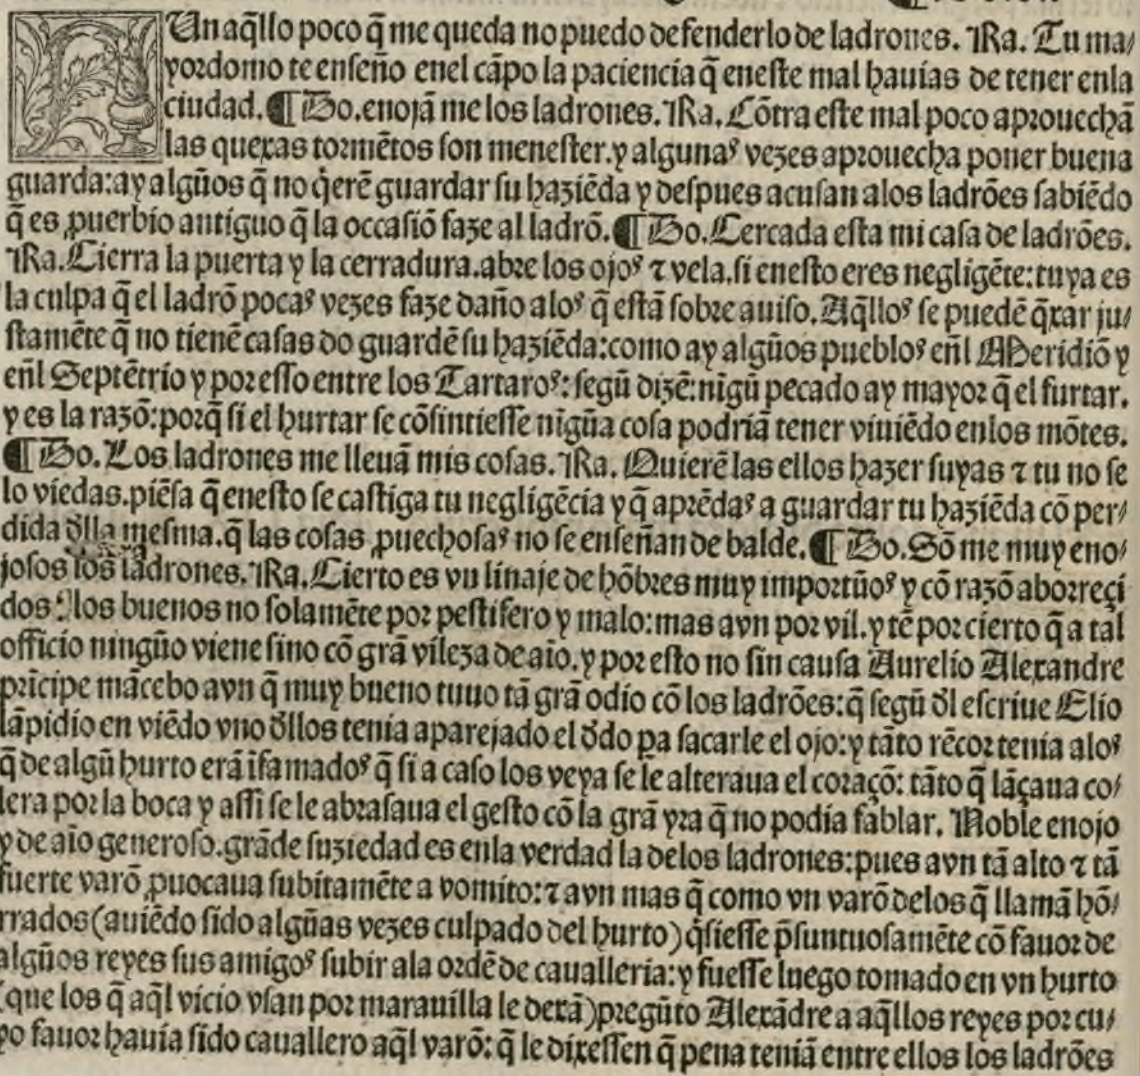 AUn aq̃llo poco q̃ me queda no puedo defenderlo de ladrones. Ra. Tu ma/
yordomo te enseño enel cãpo la paciencia q̃ eneste mal hauias de tener enla
ciudad. ¶ Do. enojã me los ladrones. Ra. Cõtra este mal poco aprouechã
las quexas tormẽtos son menester. y algunaˢ vezes aprouecha poner buena
guarda: ay algũos q̃ no q̃erẽ guardar su haziẽda y despues acusan alos ladrões sabiẽdo
q̃ es ꝓuerbio antiguo q̃ la occasiõ faze al ladrõ. ¶ Do. Cercada esta mi casa de ladrões.
Ra. Cierra la puerta y la cerradura. abre los ojoˢ ⁊ vela. si enesto eres negligẽte: tuya es
la culpa q̃ el ladrõ pocaˢ vezes faze daño aloˢ q̃ estã sobre auiso. Aq̃lloˢ se puedẽ q̃xar ju/
stamẽte q̃ no tienẽ casas do guardẽ su haziẽda: como ay algũos puebloˢ eñl Meridiõ y
eñl Septẽtrio y por esso entre los Tartaroˢ: segũ dizẽ: nigũ pecado ay mayor q̃ el furtar.
y es la razõ: porq̃ si el hurtar se cõsintiesse nigũa cosa podriã tener viuiẽdo enlos mõtes.
¶ Do. Los ladrones me lleuã mis cosas. Ra. Quierẽ las ellos hazer suyas ⁊ tu no se
lo viedas. piẽsa q̃ enesto se castiga tu negligẽcia y q̃ aprẽdaˢ a guardar tu haziẽda cõ per/
dida d̃lla mesma. q̃ las cosas ꝓuechosaˢ no se enseñan de balde. ¶ Do. Sõ me muy eno/
josos los ladrones. Ra. Cierto es vn linaje de hõbres muy importũoˢ y cõ razõ aborreçi
dos d̃los buenos no solamẽte por pestifero y malo: mas avn por vil. y tẽ por cierto q̃ a tal
officio ningũo viene sino cõ grã vileza de aĩo. y por esto no sin causa Aurelio Alexandre
prĩcipe mãcebo avn q̃ muy bueno tuuo tã grã odio cõ los ladrões: q̃ segũ d̃l escriue Elio
lãpidio en viẽdo vno d̃llos tenia aparejado el d̃do pa sacarle el ojo: y tãto rẽcor tenia aloˢ
q̃ de algũ hurto erã ĩfamadoˢ q̃ si a caso los veya se le alteraua el coraçõ: tãto q̃ lãçaua co/
lera por la boca y assi se le abrasaua el gesto cõ la grã yra q̃ no podia fablar. Noble enojo
y de aĩo generoso. grãde suziedad es enla verdad la delos ladrones: pues avn tã alto ⁊ tã
fuerte varõ ꝓuocaua subitamẽte a vomito: ⁊ avn mas q̃ como vn varõ delos q̃ llamã hõ/
rrados (auiẽdo sido algũas vezes culpado del hurto) q̃siesse p̃suntuosamẽte cõ fauor de
algũos reyes sus amigoˢ subir ala ordẽ de caualleria: y fuesse luego tomado en vn hurto
(que los q̃ aq̃l vicio vsan por marauilla le dexã) pregũto Alexãdre a aq̃llos reyes por cu/
yo fauor hauia sido cauallero aq̃l varõ: q̃ le dixessen q̃ pena teniã entre ellos los ladrões